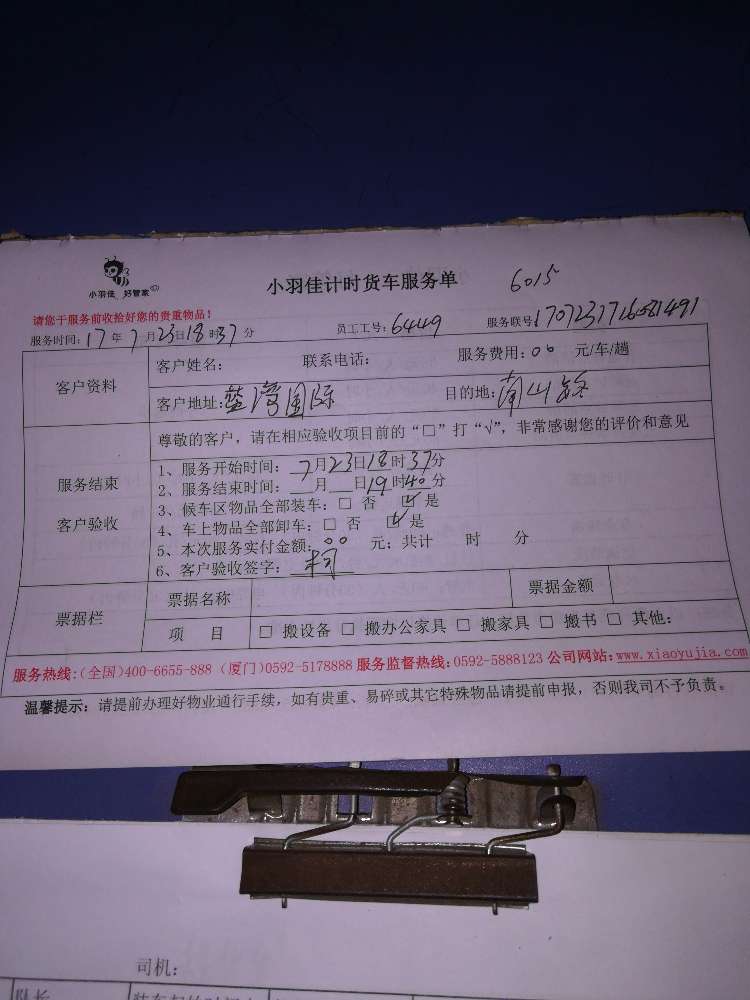 小羽佳 好管家
小羽佳计时货车服务单 6015
请您于服务前收拾好您的贵重物品！
服务时间：17年7月23日18时37分 员工工号：6449 服务联号
客户资料
客户姓名： 联系电话： 服务费用：00 元/车/趟
客户地址：蓝湾国际 目的地：南山路
服务结束
客户验收
尊敬的客户，请在相应验收项目前的“□”打“√”，非常感谢您的评价和意见
1、服务开始时间：7月23日18时37分
2、服务结束时间：__月__日19时40分
3、候车区物品全部装车：□ 否 ☑ 是
4、车上物品全部卸车：□ 否 ☑ 是
5、本次服务实付金额：00 元；共计 时 分
6、客户验收签字：柯
票据栏
票据名称 票据金额
项 目 □ 搬设备 □ 搬办公家具 □ 搬家具 □ 搬书 □ 其他：
服务热线：（全国）400-6655-888（厦门）0592-5178888 服务监督热线：0592-5888123 公司网站：www.xiaoyujia.com
温馨提示：请提前办理好物业通行手续，如有贵重、易碎或其它特殊物品请提前申报，否则我司不予负责。
司机：
队长